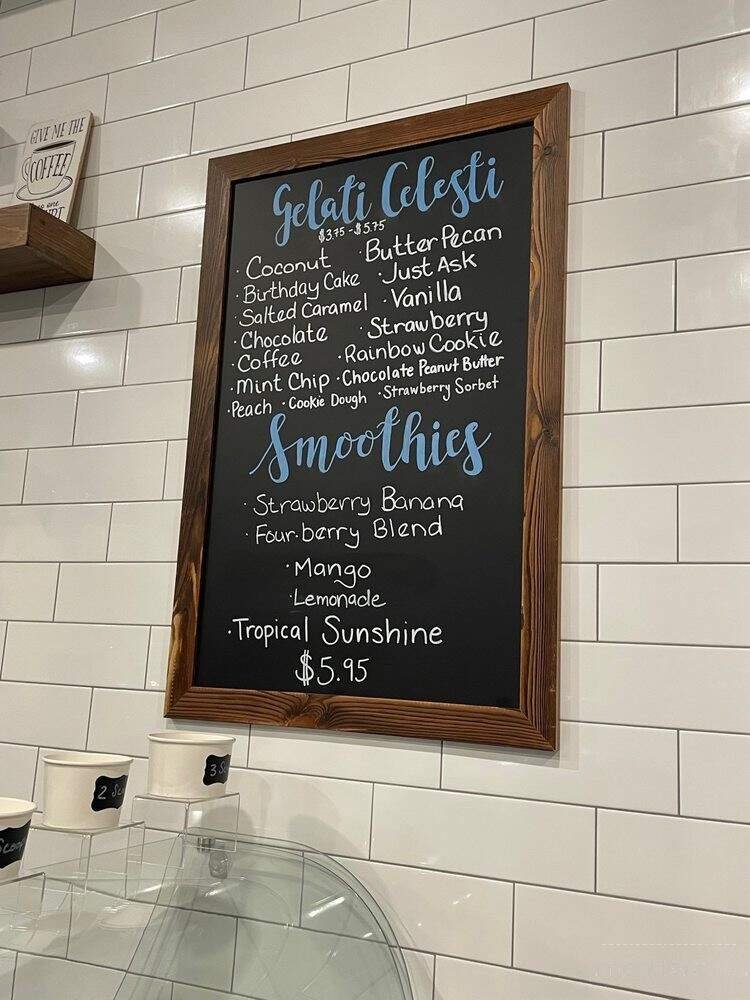 GIVE ME THE
COFFEE
Gelati Celesti
$3.75 - $5.75
· Coconut · Butter Pecan
· Birthday Cake · Just Ask
· Salted Caramel · Vanilla
· Chocolate · Strawberry
· Coffee · Rainbow Cookie
· Mint Chip · Chocolate Peanut Butter
· Peach · Cookie Dough · Strawberry Sorbet
Smoothies
· Strawberry Banana
· Four-berry Blend
· Mango
· Lemonade
· Tropical Sunshine
$5.95
3 Sc
2 Sc